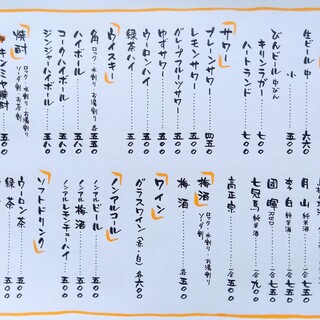 生ビール 中 六六〇
小 五〇〇
びんビール 中びん
キリンラガー 七〇〇
ハートランド 七〇〇
サワー
プレーンサワー 四五〇
レモンサワー 五〇〇
グレープフルーツサワー 五〇〇
ゆずサワー 五〇〇
ウーロンハイ 五〇〇
緑茶ハイ 五〇〇
ウイスキー
角 ロック・水割り・お湯割り 各五五〇
ハイボール 五五〇
コークハイボール 五八〇
ジンジャーハイボール 五八〇
焼酎
ロック・水割り・お湯割り
ソーダ割・お茶割
キンミヤ焼酎 五〇〇
月山 純米酒 一合 七五〇
李白 純米酒 一合 七五〇
國暉 一合 七五〇
七冠馬 純米酒 一合 九〇〇
高正宗 一合 五〇〇
梅酒
ロック・水割り・お湯割り
ソーダ割
梅酒 各五〇〇
ワイン
グラスワイン(赤・白) 各六〇〇
ノンアルコール
ノンアルビール 五〇〇
ノンアル梅酒 五〇〇
ノンアルレモンチューハイ 五〇〇
ソフトドリンク
ウーロン茶 五〇〇
緑茶 五〇〇